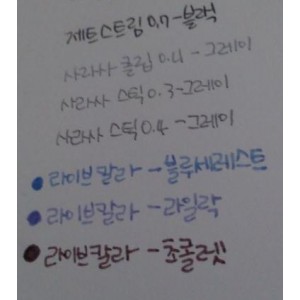 제트스트림 0.7 - 블랙
사라사 클립 0.4 - 그레이
사라사 스틱 0.3 - 그레이
사라사 스틱 0.4 - 그레이
● 라이브칼라 - 블루세레스트
● 라이브칼라 - 라일락
● 라이브칼라 - 초콜렛